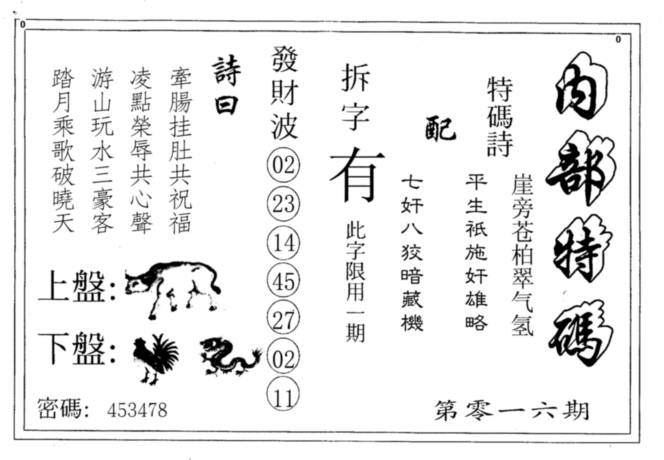 内部特碼
特碼詩
崖旁苍柏翠气氢
平生祇施奸雄略
配
七奸八狡暗藏機
拆字
有
此字限用一期
發財波
02
23
14
45
27
02
11
詩曰
牽腸挂肚共祝福
凌點榮辱共心聲
游山玩水三豪客
踏月乘歌破曉天
上盤:
下盤:
密碼: 453478
第零一六期
0
0